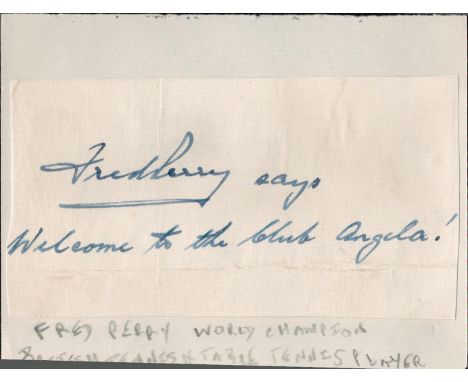 Fred Perry says
Welcome to the Club Angela!
FRED PERRY WORLD CHAMPION
BRITISH TENNIS N TABLE TENNIS PLAYER